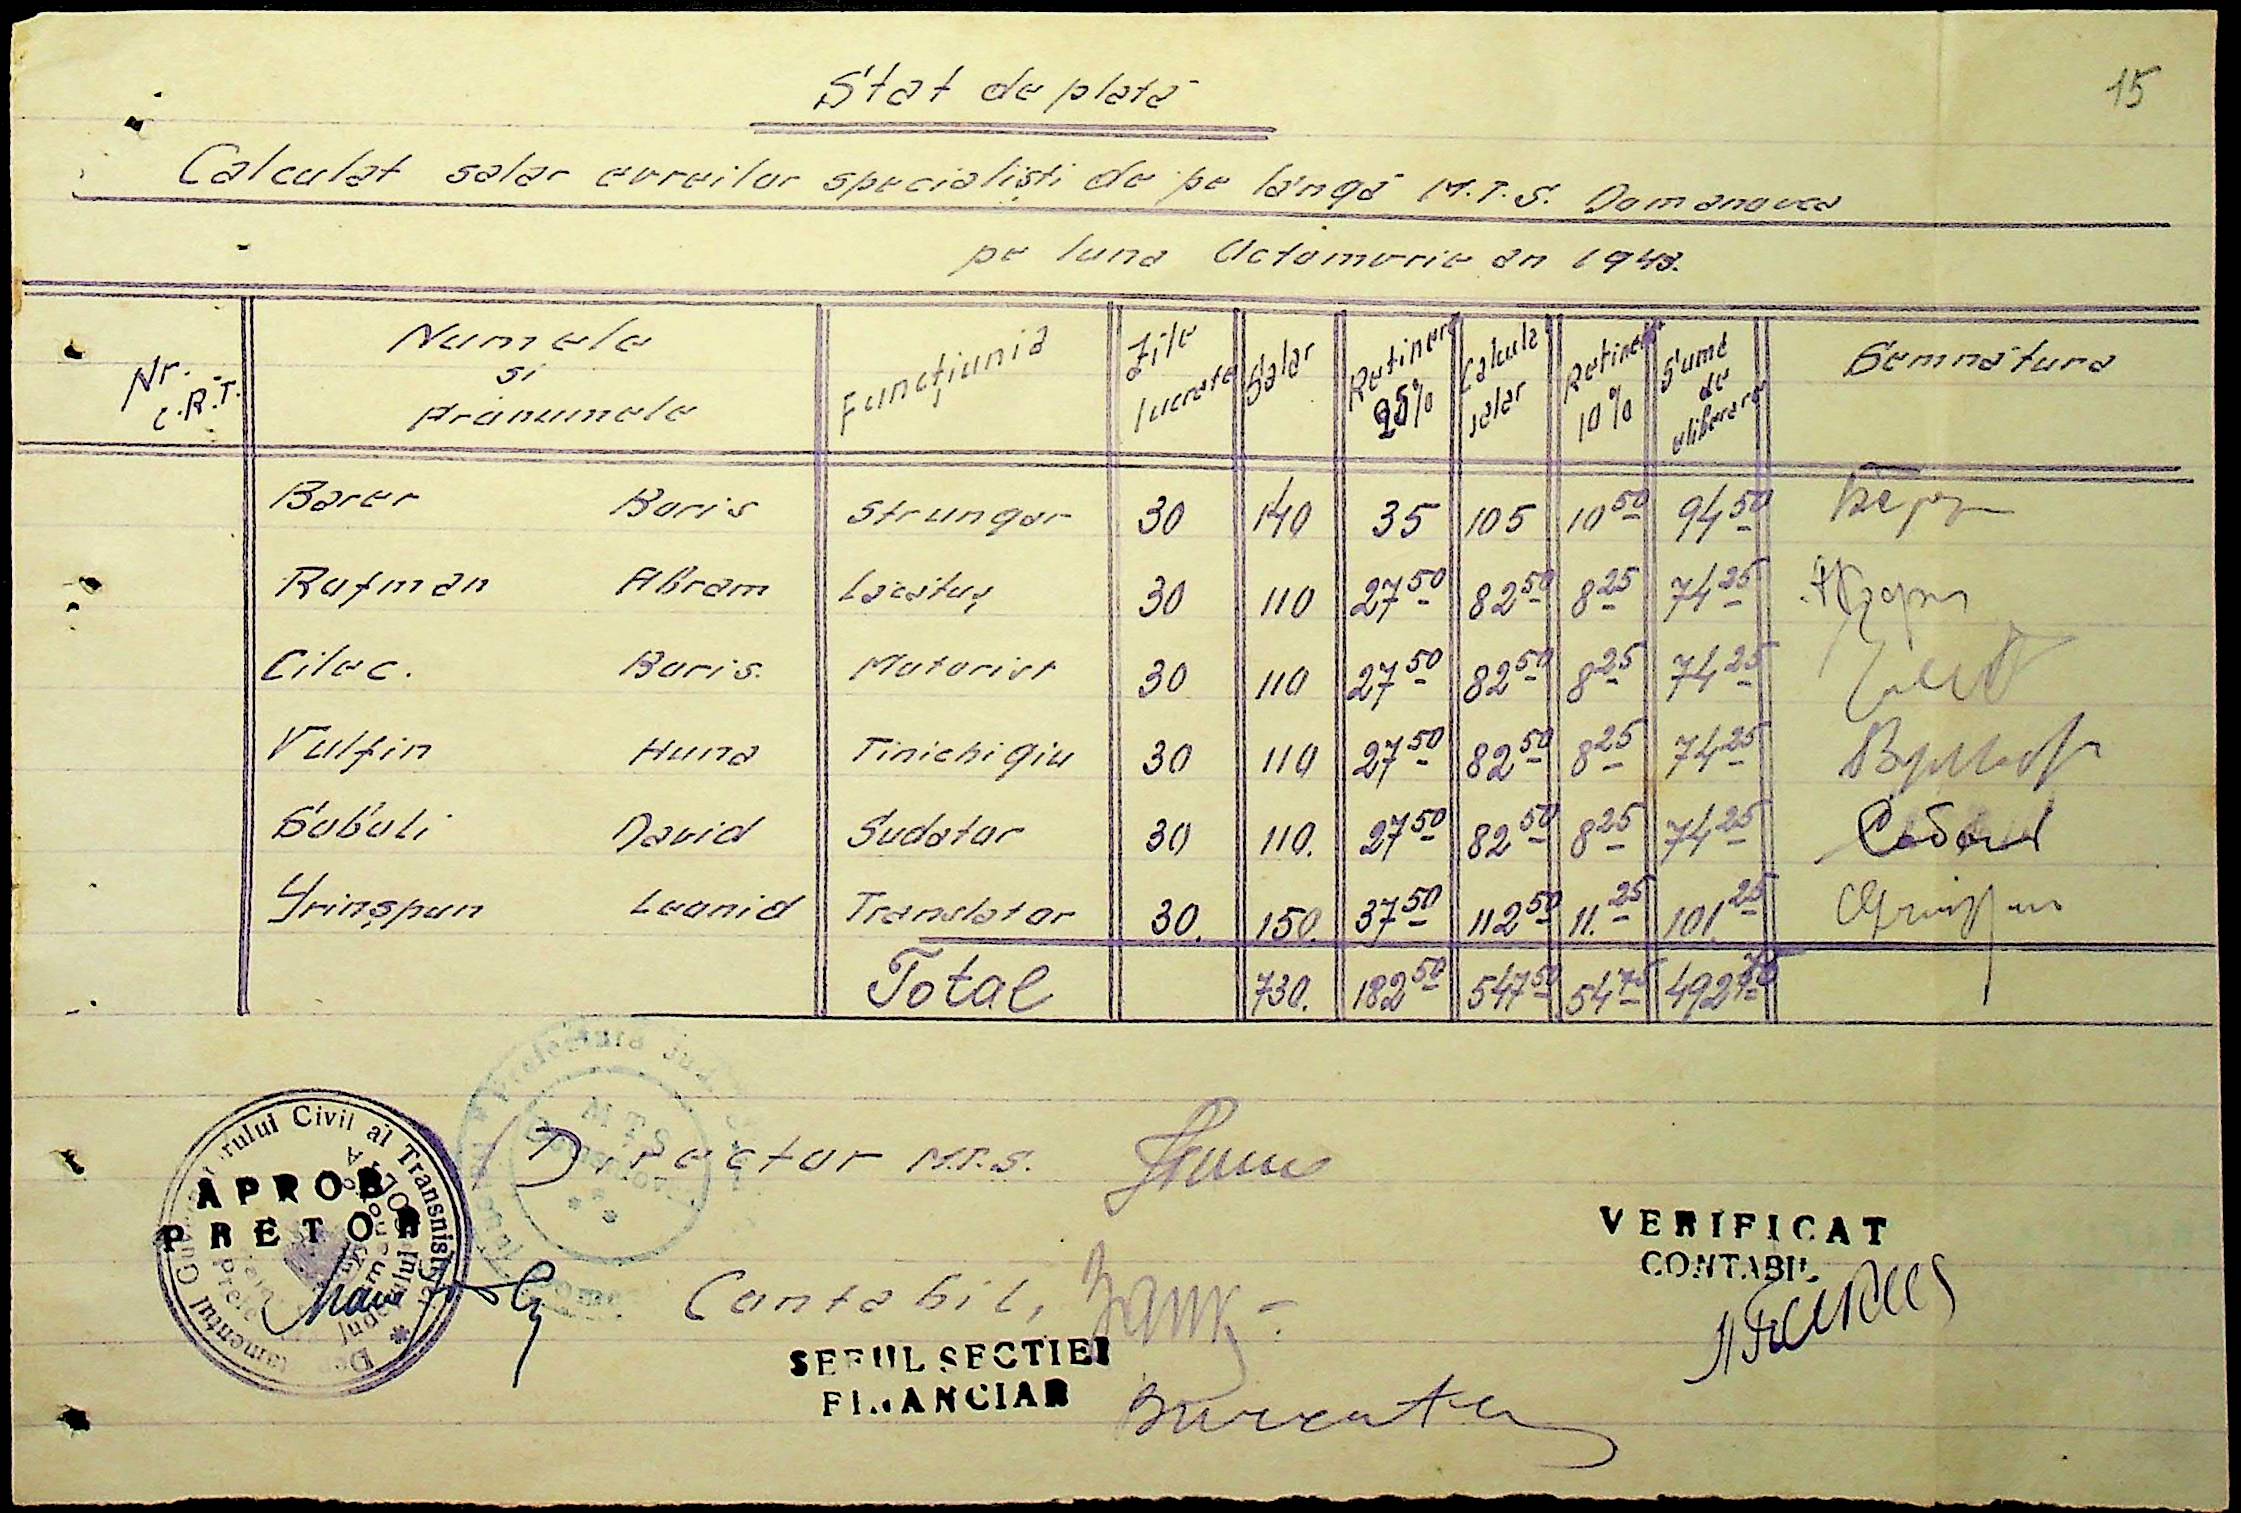 15
Stat de plată
Calculat salar evreilor specialiști de pe lângă M.T.S. Domanovca
pe luna Octomvrie an 1943.
Nr. c.R.T. Numele si Pronumele Funcțiunia Zile lucrate Salar Retinere 25% Calcula salar Retinere 10% Sume de eliberare Semnătura
Barer Boris Strungar 30 140 35 105 10 50 94 50
Rofman Abram Lăcătuș 30 110 27 50 82 50 8 25 74 25
Cilec. Boris. Motorist 30 110 27 50 82 50 8 25 74 25
Vulfin Huna Tinichigiu 30 110 27 50 82 50 8 25 74 25
Soboli David Sudotor 30 110. 27 50 82 50 8 25 74 25
Grinșpun Leonid Translator 30. 150. 37 50 112 50 11. 25 101. 25
Total 730. 182 50 547 50 54 75 492 75
Prefectura
MTS
rulul Civil al Transnistriei
APROB
PRETOR
Judeţului
Director M.T.S.
VERIFICAT
CONTABIL
Contabil,
SEFUL SECTIEI
FINANCIAR